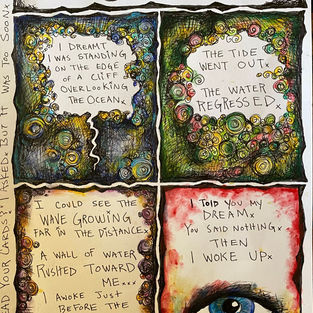 I DREAMT
I WAS STANDING
ON THE EDGE
OF A CLIFF
OVERLOOKING
THE OCEANx
THE TIDE
WENT OUTx
THE WATER
REGRESSEDx
I COULD SEE THE
WAVE GROWING
FAR IN THE DISTANCEx
A WALL OF WATER
RUSHED TOWARD
MExxx
I AWOKE JUST
BEFORE THE
I TOLD YOU MY
DREAMx
YOU SAID NOTHINGx
THEN
I WOKE UPx
EAD YOUR CARDS? I ASKEDx BUT IT WAS TOO SOONx